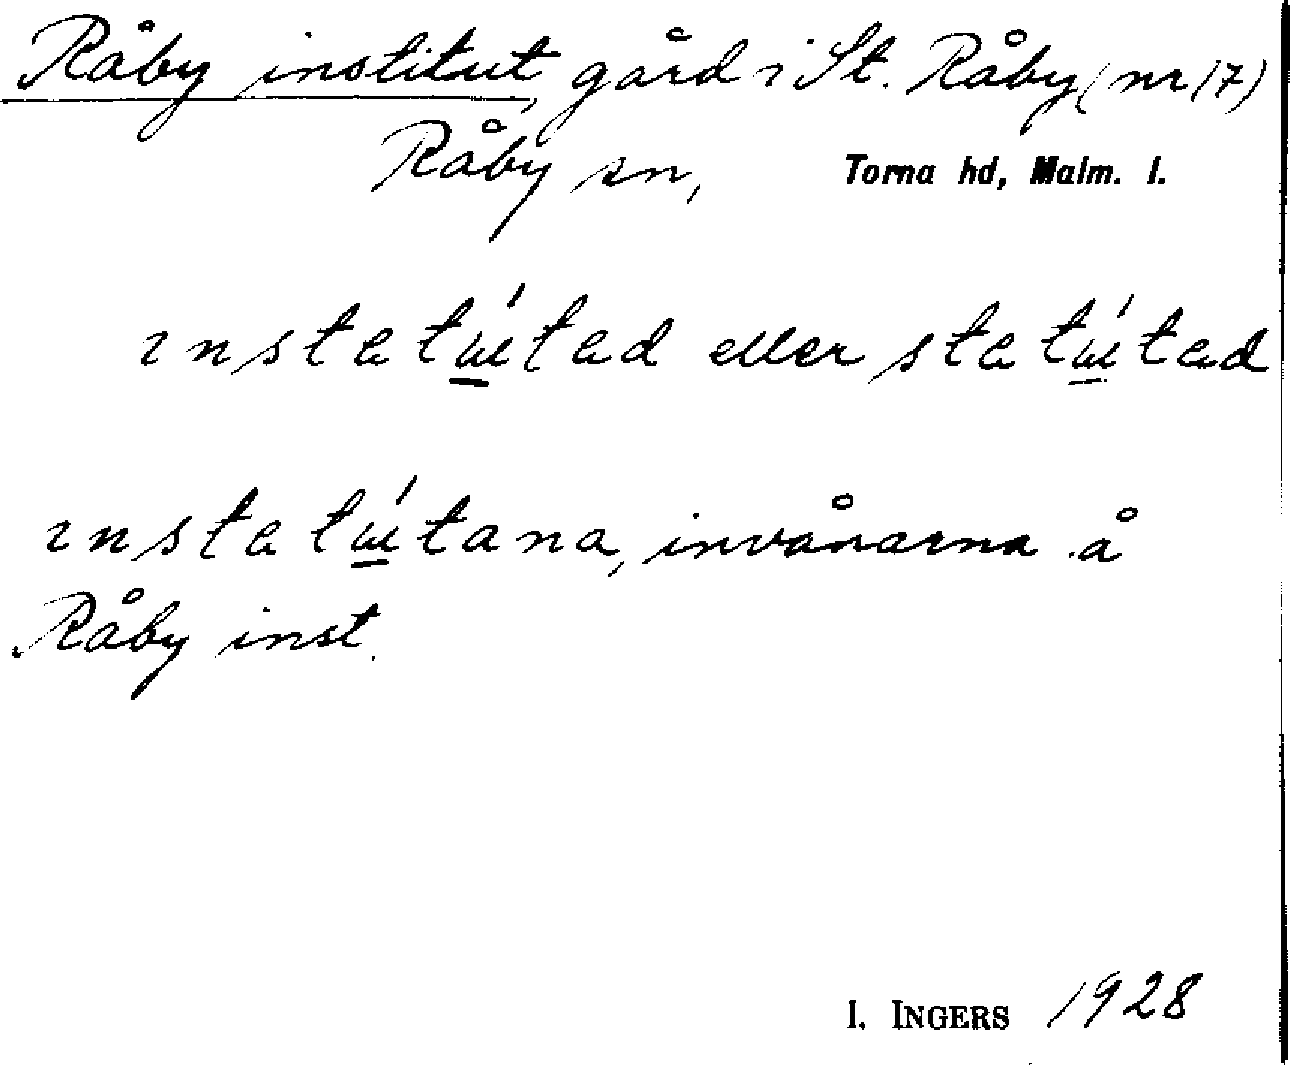 Råby institut, gård i St. Råby (nr 17)
Råby sn, Torna hd, Malm. l.
instatú̲tad eller statú̲tad
instatú̲tana, invånarna å
Råby inst.
I. INGERS 1928